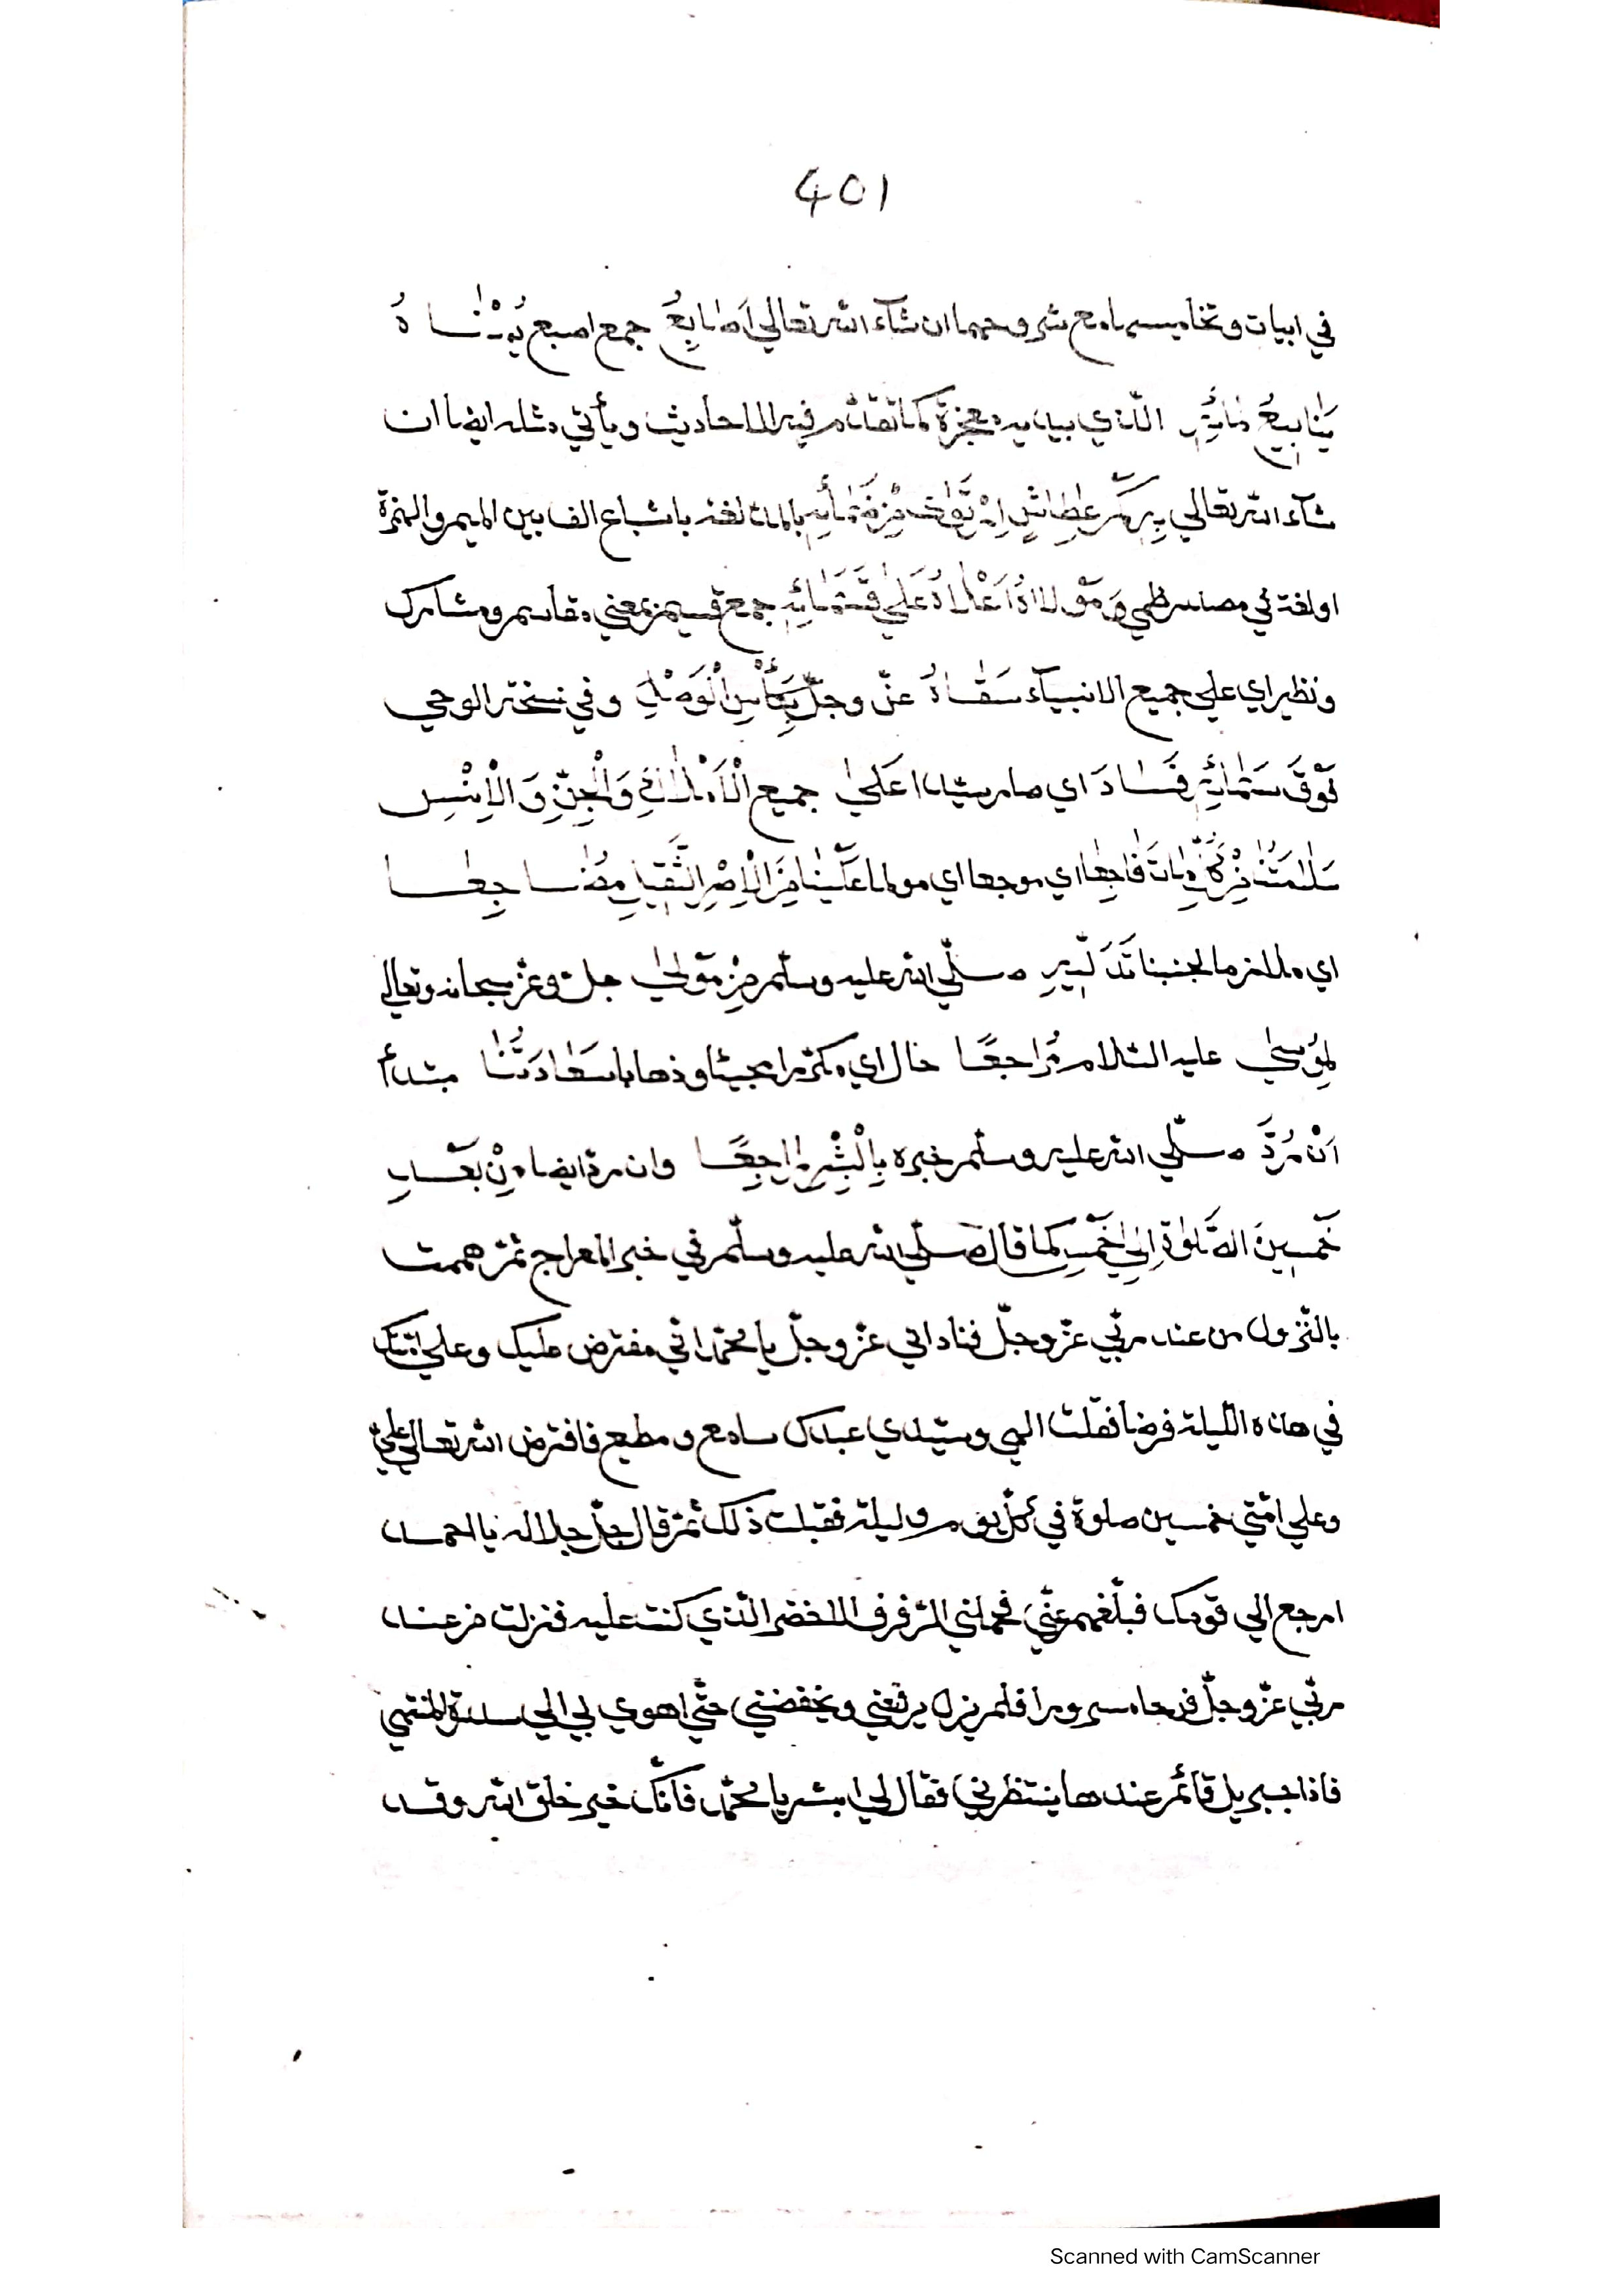 401
في ابيات وتخاميسها مع شروحهما ان شآء الله تعالي اَصَابِعُ جمع اصبع يُمْنَاهُ
يَنَابِيعُ مَائِهِ الّذي بيديه معجزة كما تقدّم فيه الاحاديث ويأتي مثله ايضا ان
شآء الله تعالي بالمد لغة باشباع الف بين الميم والهمزة
او لغة في مصدر ظمي وَمَوْلَاهُ اَعْلَاهُ عَلَي قُسَمَائِهِ جمع قسيم بمعني مقاسم ومشارك
ونظير اي علي جميع الانبيآء سَقَاهُ عزّ وجلّ بِكَأْسِ الْوَصْلِ وفي نسخة الوحي
فَوْقَ سَمَائِهِ فَسَادَ اي صار سيّدا عَلَي جميع الْاَمْلَاكِ وَالْجِنِّ وَالْاِنْسِ
اي موجعا اي مولما عَلَيْنَا مِنَ الْاِصْرِ الثَّقِيلِ مُضَاجِعا
اي ملازما لجنبنا تَدَلِّيهِ صلّي الله عليه وسلّم مِنْ مَوْلَي جلّ وعزّ سبحانه وتعالي
لِمُوسَي عليه السّلام مُرَاجِعًا حال اي مكرّرا مجيئا وذهابا سَعَادَتُنَا مبتدأ
اَنْ رُدَّ صلّي الله عليه وسلّم خبره بِالْبِشْرِ رَاجِعًا وان ردّ ايضا مِنْ بَعْدِ
خَمْسِينَ الصَّلٰوةِ اِلَي خَمْسٍ كما قال صلّي الله عليه وسلّم في خبر المعراج ثمّ هممت
بالنّزول من عند ربّي عزّ وجلّ فناداني عزّ وجلّ يا محمّد انّي مفترض عليك وعلي امّتك
في هذه اللّيلة فرضا فقلت الهي وسيّدي عبدك سامع ومطيع فافترض الله تعالي عليّ
وعلي امّتي خمسين صلوة في كلّ يوم وليلة فقبلت ذلك ثمّ قال جلّ جلاله يا احمد
ارجع الي قومك فبلّغهم عنّي فحملني الرّفرف الاخضر الّذي كنت عليه فنزلت من عند
ربّي عزّ وجلّ فرحا مسرورا فلم يزل يرفعني ويخفضني حتّي اهوي بي الي سدرة المنتهي
فاذا جبريل قائم عندها ينتظرني فقال لي ابشر يا محمّد فانّك خير خلق الله وقد
Scanned with CamScanner